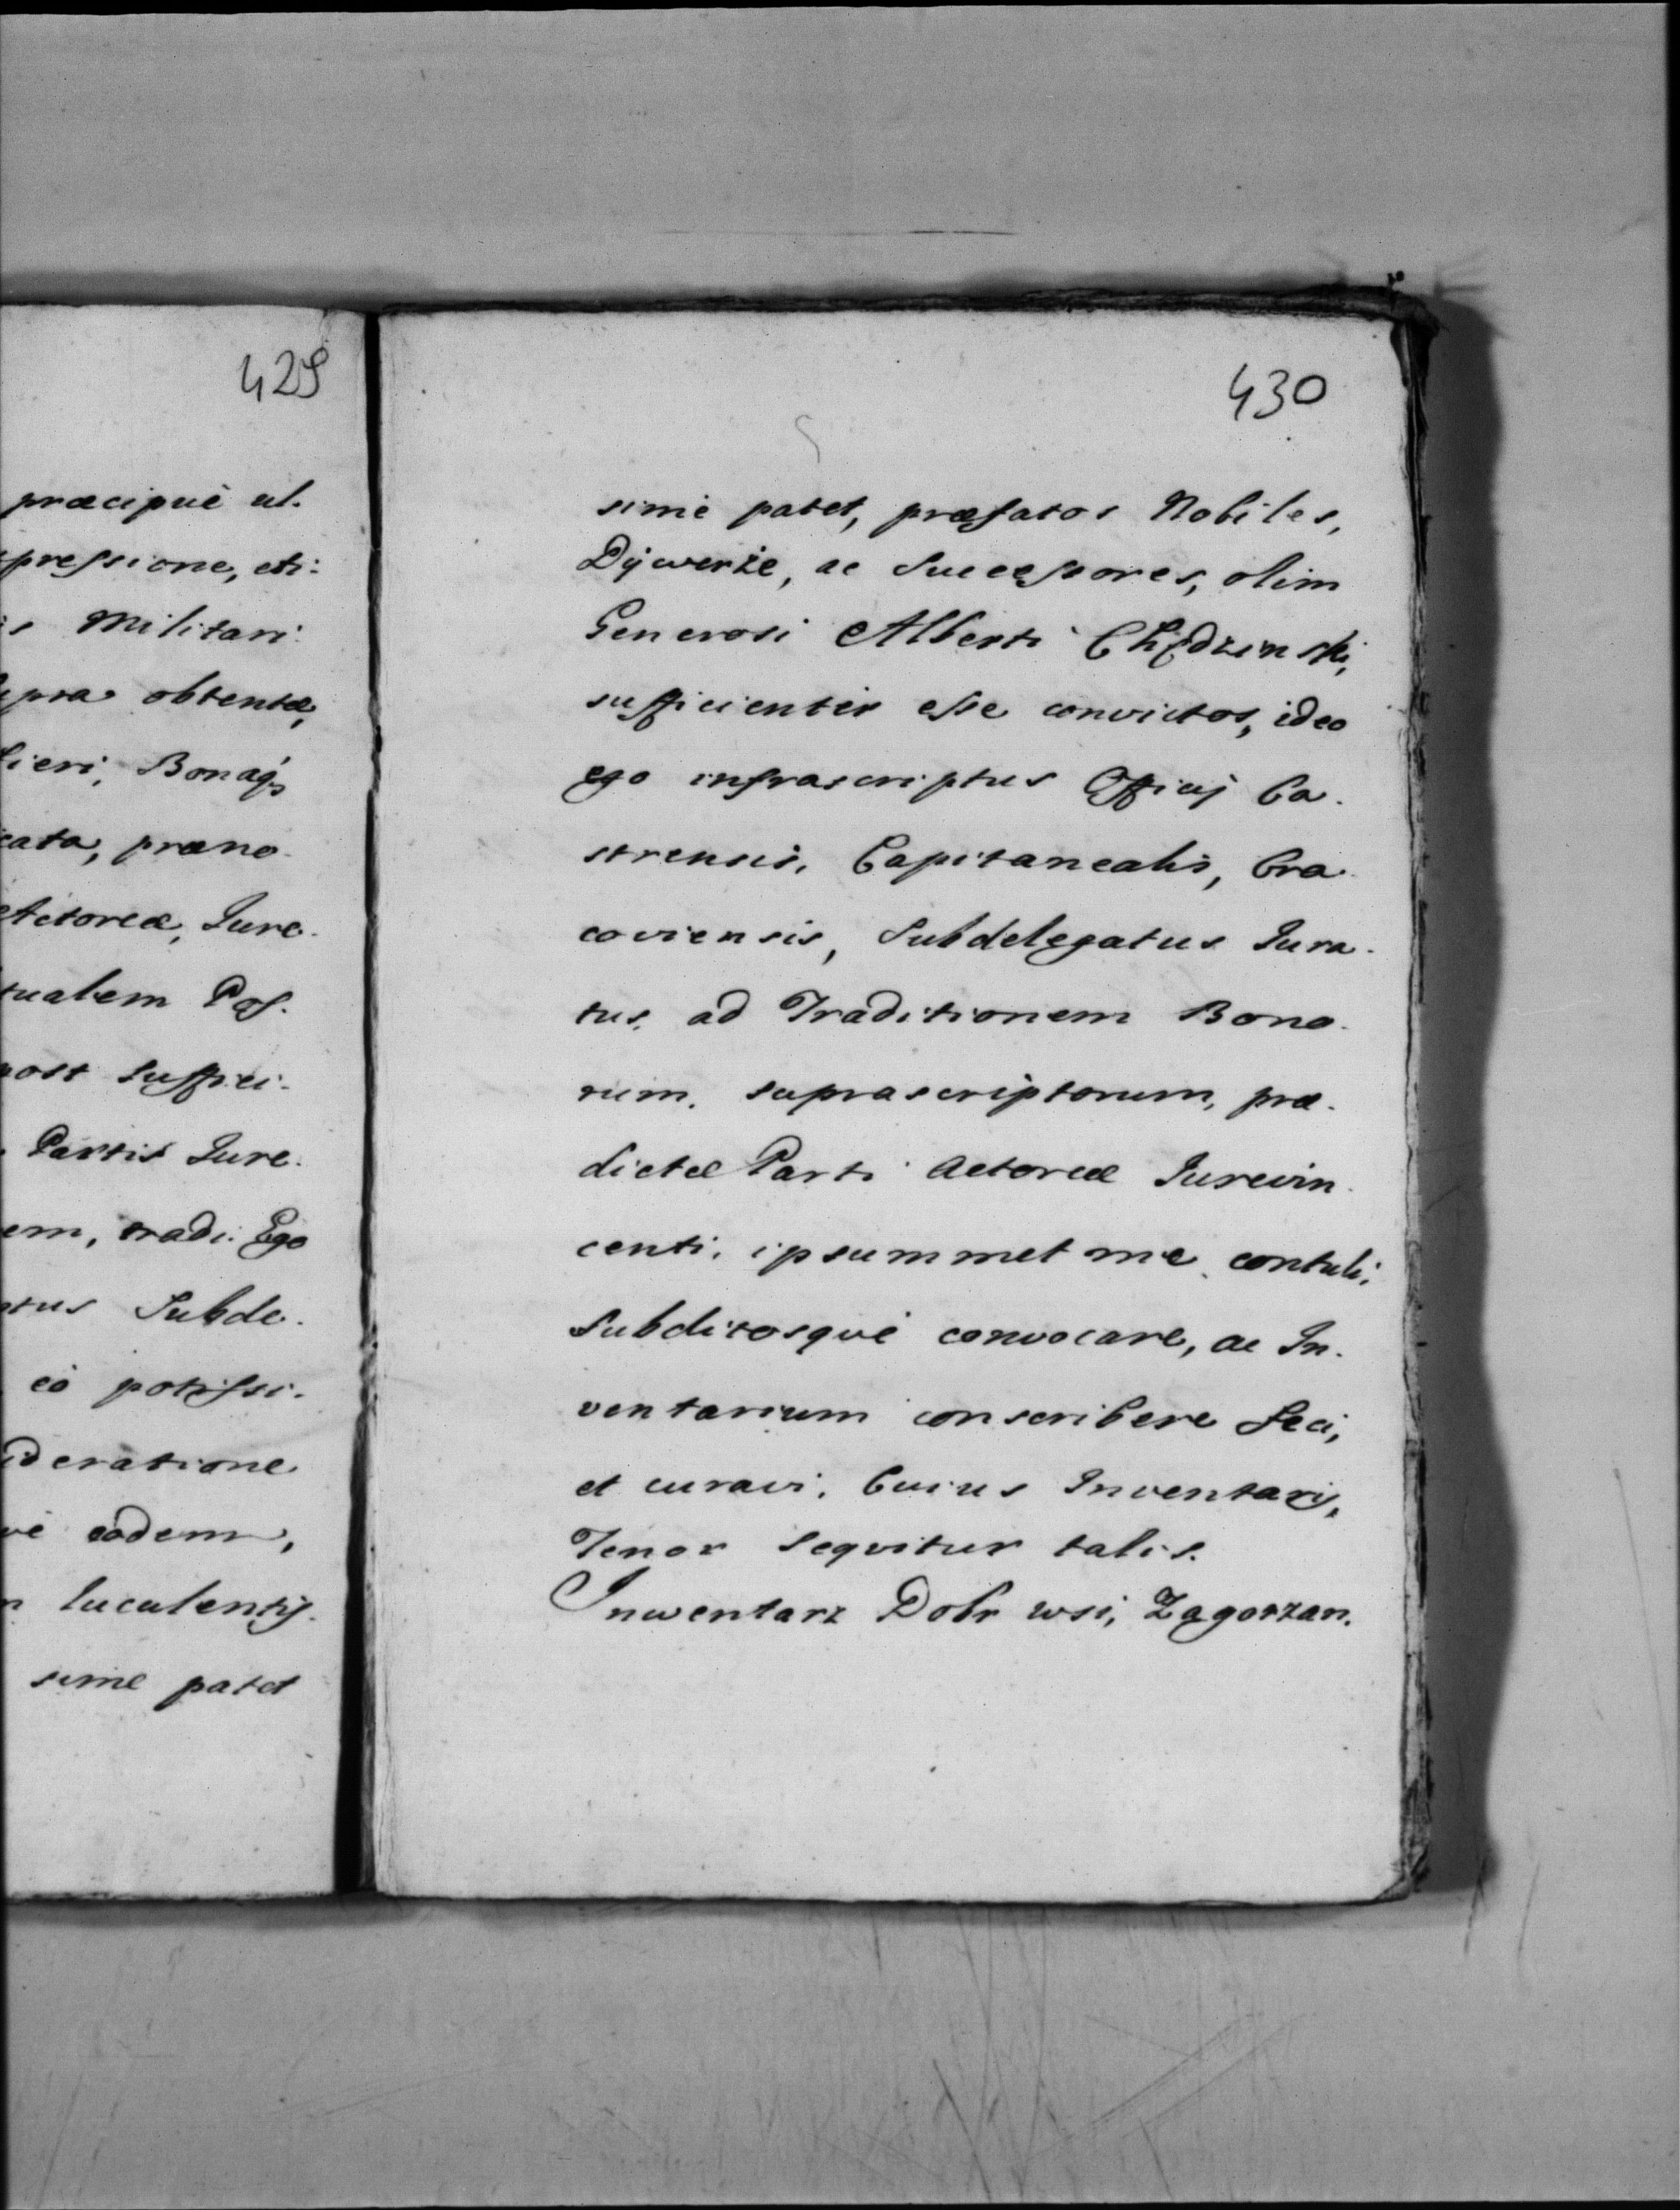 429
præcipuè ul.
pressione, eti:
s Militari.
upra obtentæ,
lieri, Bonaq́
cata, præno.
Actoreæ, Jure.
tualem Pos.
post suffici.
Partis Jure.
em, tradi. Ego
tus Subde.
eò potissi.
iderationé
vè eodem,
n luculentis.
sime patet
430
simè patet, præfatos Nobiles,
Dÿwerże, ac Successores, olim
Generosi Alberti Chędzinski,
sufficienter esse convictos, ideo
ego infrascriptus Officij Ca.
strensis, Capitanealis, Cra.
coviensis, Subdelegatus Jura.
tus, ad Traditionem Bono.
rum, suprascriptorum, præ.
dictæ Parti Actoreæ Jurevin.
centi, ipsummet me contuli,
Subditosquè convocare, ac In.
ventarium conscribere feci,
et curavi. Cuius Inventarij,
Tenor sequitur talis.
Inwentarz Dobr wsi, Zagorzan.